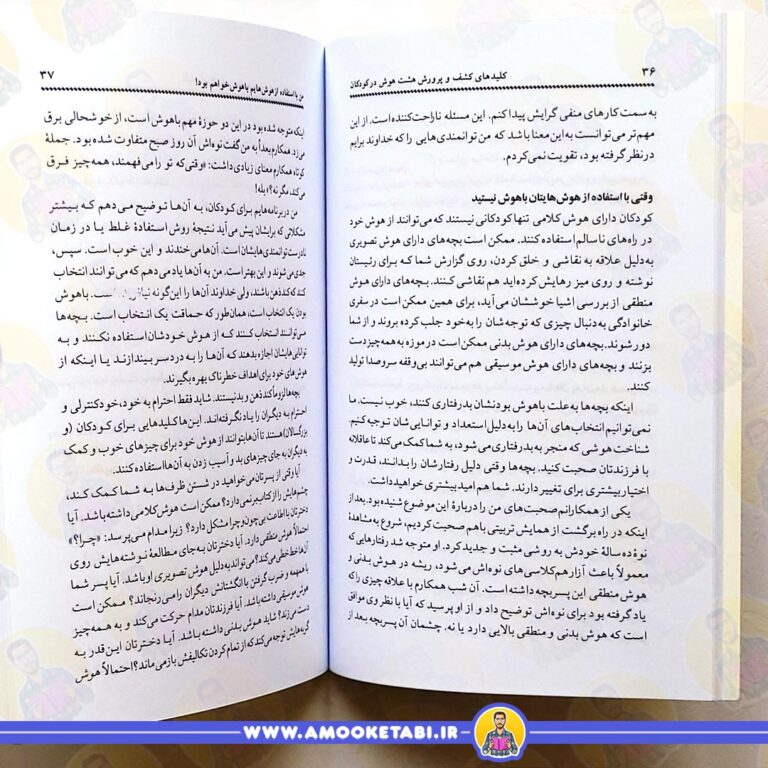 ۳۶
کلیدهای کشف و پرورش هشت هوش در کودکان
به سمت کارهای منفی گرایش پیدا کنم. این مسئله ناراحت‌کننده است. از این
مهم‌تر می‌توانست به این معنا باشد که من توانمندی‌هایی را که خداوند برایم
در نظر گرفته بود، تقویت نمی‌کردم.
وقتی با استفاده از هوش‌هایتان باهوش نیستید
کودکان دارای هوش کلامی تنها کودکانی نیستند که می‌توانند از هوش خود
در راه‌های ناسالم استفاده کنند. ممکن است بچه‌های دارای هوش تصویری
به‌دلیل علاقه به نقاشی و خلق کردن، روی گزارش شما که برای رئیستان
نوشته و روی میز رهایش کرده‌اید هم نقاشی کنند. بچه‌های دارای هوش
منطقی از بررسی اشیا خوششان می‌آید، برای همین ممکن است در سفری
خانوادگی به‌دنبال چیزی که توجه‌شان را به‌خود جلب کرده بروند و از شما
دور شوند. بچه‌های دارای هوش بدنی ممکن است در موزه به همه‌چیز دست
بزنند و بچه‌های دارای هوش موسیقی هم می‌توانند بی‌وقفه سروصدا تولید
کنند.
اینکه بچه‌ها به‌علت باهوش بودنشان بدرفتاری کنند، خوب نیست. ما
نمی‌توانیم انتخاب‌های آن‌ها را به‌دلیل استعداد و توانایی‌شان توجیه کنیم.
شناخت هوشی که منجر به بدرفتاری می‌شود، به شما کمک می‌کند تا عاقلانه
با فرزندتان صحبت کنید. بچه‌ها وقتی دلیل رفتارشان را بدانند، قدرت و
اختیار بیشتری برای تغییر دارند. شما هم امید بیشتری خواهید داشت.
یکی از همکارانم صحبت‌های من را دربارهٔ این موضوع شنیده بود. بعد از
اینکه در راه برگشت از همایش تربیتی باهم صحبت کردیم، شروع به مشاهدهٔ
نوهٔ ده سالهٔ خودش به روشی مثبت و جدید کرد. او متوجه شد رفتارهایی که
معمولاً باعث آزار هم‌کلاسی‌های نوه‌اش می‌شود، ریشه در هوش بدنی و
هوش منطقی این پسربچه داشته است. آن شب همکارم با علاقه چیزی را که
یاد گرفته بود برای نوه‌اش توضیح داد و از او پرسید که آیا با نظر وی موافق
است که هوش بدنی و منطقی بالایی دارد یا نه. چشمان آن پسربچه بعد از
من با استفاده از هوش‌هایم باهوش خواهم بود!
۳۷
اینکه متوجه شده بود در این دو حوزهٔ مهم باهوش است، از خوشحالی برق
می‌زد. همکارم بعداً به من گفت نوه‌اش آن روز صبح متفاوت شده بود. جملهٔ
کوتاه همکارم معنای زیادی داشت: «وقتی که تو را می‌فهمند، همه‌چیز فرق
می‌کند، مگر نه؟» بله!
من در برنامه‌هایم برای کودکان، به آن‌ها توضیح می‌دهم که بیشتر
مشکلاتی که برایشان پیش می‌آید نتیجهٔ روش استفادهٔ غلط یا در زمان
نادرست توانمندی‌هایشان است. آن‌ها می‌خندند و این خوب است. سپس،
جدی می‌شوند و این بهتر است. من به آن‌ها یاد می‌دهم که می‌توانند انتخاب
کنند که کندذهن باشند، ولی خداوند آن‌ها را این‌گونه نیافریده است. باهوش
بودن یک انتخاب است، همان‌طور که حماقت یک انتخاب است. بچه‌ها
می‌توانند انتخاب کنند که از هوش خودشان استفاده نکنند و به
توانایی‌هایشان اجازه بدهند که آن‌ها را به دردسر بیندازند یا اینکه از
هوش‌های خود برای اهداف خطرناک بهره بگیرند.
بچه‌ها لزوماً کندذهن و بد نیستند. شاید فقط احترام به خود، خودکنترلی و
احترام به دیگران را یاد نگرفته‌اند. این‌ها کلیدهایی برای کودکان (و
بزرگسالان) هستند تا آن‌ها بتوانند از هوش خود برای چیزهای خوب و کمک
به دیگران به جای چیزهای بد و آسیب زدن به آن‌ها استفاده کنند.
آیا وقتی از پسرتان می‌خواهید در شستن ظرف‌ها به شما کمک کند،
چشم‌هایش را از کتاب برنمی‌دارد؟ ممکن است هوش کلامی داشته باشد. آیا
دخترتان با اطاعت بی‌چون‌وچرا مشکل دارد؟ زیرا مدام می‌پرسد: «چرا؟»
احتمالاً هوش منطقی دارد. آیا دخترتان به‌جای مطالعهٔ نوشته‌هایش روی
آن‌ها خط‌خطی می‌کند؟ می‌تواند به‌دلیل هوش تصویری او باشد. آیا پسر شما
با همهمه و ضرب گرفتن با انگشتانش دیگران را می‌رنجاند؟ ممکن است
هوش موسیقی داشته باشد. آیا فرزندتان مدام حرکت می‌کند و به همه‌چیز
دست می‌زند؟ شاید هوش بدنی داشته باشد. آیا دخترتان این قدر به
گربه‌هایش توجه می‌کند که از تمام کردن تکالیفش بازمی‌ماند؟ احتمالاً هوش
WWW.AMOOKETABI.IR